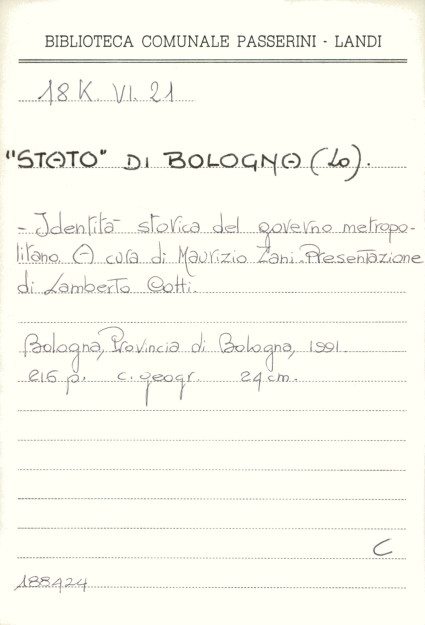 BIBLIOTECA COMUNALE PASSERINI - LANDI
18 K. VI. 21
"STATO" DI BOLOGNA (Lo).
- Identità storica del governo metropo-
litano. A cura di Maurizio Zani. Presentazione
di Lamberto Cotti.
Bologna, Provincia di Bologna, 1991.
216 p. c. geogr. 24 cm.
C
188424